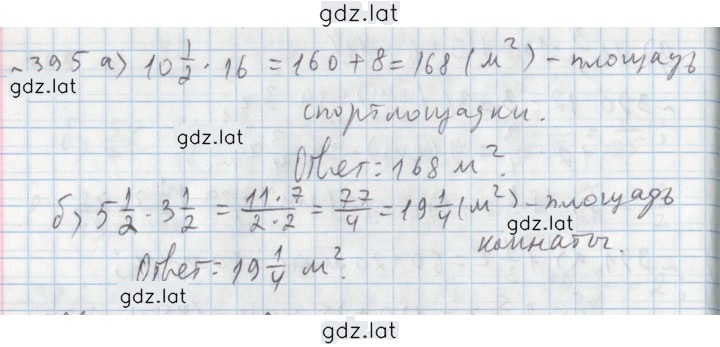 gdz.lat
~395 а) 10 1/2 · 16 = 160 + 8 = 168 (м²) - площадь
gdz.lat
спортплощадки.
gdz.lat
Ответ: 168 м².
б) 5 1/2 · 3 1/2 = 11·7/2·2 = 77/4 = 19 1/4 (м²) - площадь
gdz.lat
комнаты.
Ответ: 19 1/4 м².
gdz.lat
gdz.lat